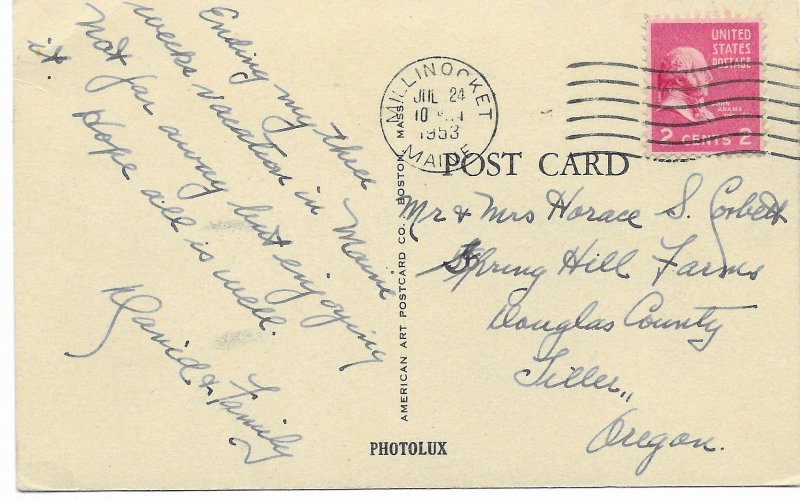 Ending my three
weeks vacation in Maine
not far away but enjoying
it. Hope all is well.
David & Family
MILLINOCKET
JUL 24
1953
MAINE
UNITED
STATES
POSTAGE
JOHN
ADAMS
2 CENTS 2
POST CARD
Mr & Mrs Horace S. Corbett
Spring Hill Farms
Douglas County
Tiller,
Oregon.
AMERICAN ART POSTCARD CO. BOSTON MASS
PHOTOLUX